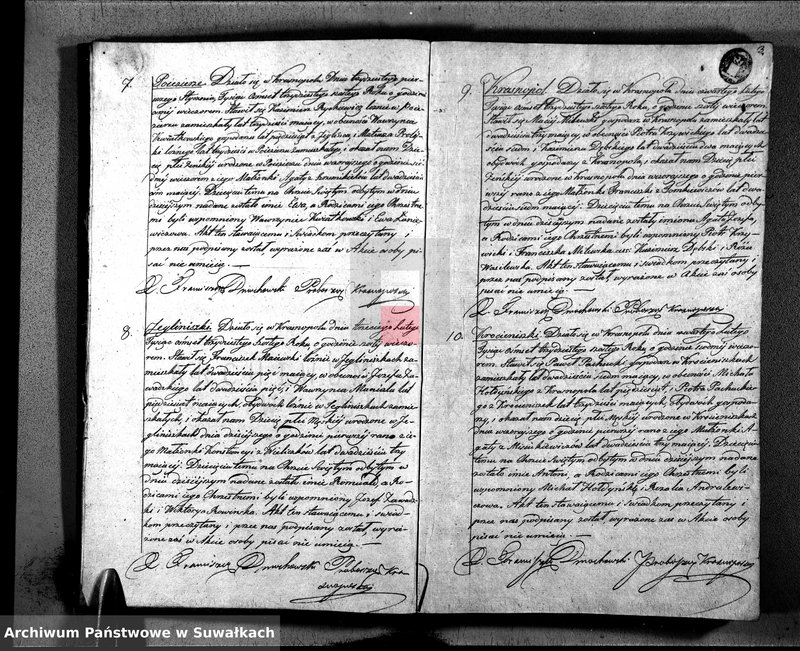 3
7.
Boćwiecie. Działo się w Krasnopolu Dnia trzydziestego pier-
wszego Stycznia Tysiąc ośmset trzydziestego szóstego Roku o godzinie
wieczorem. Stawił się Kazimierz
zamieszkały lat trzydzieści mający, w obecności Wawrzyńca
Kwiatkowskiego lat pięćdziesiąt i Mateusza
lat trzydzieści w zamieszkałych, i okazał nam Dzie-
cię płci żeńskiej urodzone w dnia wczorajszego o godzinie
wieczorem z jego Małżonki Agaty z lat dwadzieścia
mającej. Dziecięciu temu na Chrzcie Świętym odbytym w dniu
dzisiejszym nadane zostało imię Ewa, a Rodzicami jego Chrzestne-
mi byli wspomniony Wawrzyniec Kwiatkowski i Ewa
Akt ten stawającemu i świadkom przeczytany i
przez nas podpisany został, wyrażone zaś w Akcie osoby pi-
sać nie umieją. —
X. Franciszek Dmochowski Proboszcz Krasnopolski
8.
Jegliniszki. Działo się w Krasnopolu dnia trzeciego Lutego
Tysiąc ośmset trzydziestego szóstego Roku o godzinie szóstej wieczo-
rem. Stawił się Franciszek w Jegliniszkach za-
mieszkały lat dwadzieścia pięć mający, w obecności Józefa Za-
wadzkiego lat dwadzieścia pięć i Wawrzyńca lat
pięćdziesiąt mających, obydwóch w Jegliniszkach zamie-
szkałych, i okazał nam Dziecię płci Męskiej urodzone w Je-
gliniszkach dnia dzisiejszego o godzinie pierwszej rano z je-
go Małżonki Konstancyi z lat dwadzieścia trzy
mającej. Dziecięciu temu na Chrzcie Świętym odbytym w
dniu dzisiejszym nadane zostało imię Romuald, a Ro-
dzicami jego Chrzestnemi byli wspomniony Józef Zawadz-
ki i Wiktorya Akt ten stawającemu i świad-
kom przeczytany i przez nas podpisany został, wyra-
żone zaś w Akcie osoby pisać nie umieją. —
X. Franciszek Dmochowski Proboszcz Kra-
snopolski
9.
Krasnopol. Działo się w Krasnopolu dnia czwartego Lutego
Tysiąc ośmset trzydziestego szóstego Roku o godzinie szóstej wieczorem.
Stawił się Maciej gospodarz w Krasnopolu zamieszkały lat
dwadzieścia trzy mający, w obecności Piotra Krzywickiego lat dwadzie-
ścia siedm, i Kazimierza Dębskiego lat dwadzieścia dwa mających
obydwóch gospodarzy z Krasnopola, i okazał nam Dziecię płci
Żeńskiej urodzone w Krasnopolu dnia wczorajszego o godzinie pier-
wszej rano z jego Małżonki Franciszki z lat dwa-
dzieścia siedm mającej. Dziecięciu temu na Chrzcie Świętym odby-
tym w dniu dzisiejszym nadane zostały imiona Agata Józefa,
a Rodzicami jego Chrzestnemi byli wspomniony Piotr Krzy-
wicki i Franciszka Milewska Kazimierz Dębski i Róża
Wasilewska. Akt ten stawającemu i świadkom przeczytany i
przez nas podpisany został, wyrażone w Akcie zaś osoby
pisać nie umieją. —
X. Franciszek Dmochowski Proboszcz Krasnopolski
10.
Krucieniszki. Działo się w Krasnopolu dnia czwartego Lutego
Tysiąc ośmset trzydziestego szóstego Roku o godzinie siódmej wieczo-
rem. Stawił się Paweł Pachucki gospodarz w Krucieniszkach
zamieszkały lat dwadzieścia siedm mający, w obecności Michała
Hołdyńskiego z Krasnopola lat pięćdziesiąt, i Piotra Pachuckie-
go z Krucieniszek lat trzydzieści mających, obydwóch gospoda-
rzy, i okazał nam Dziecię płci Męskiej urodzone w Krucieniszkach
dnia wczorajszego o godzinie pierwszej rano z jego Małżonki A-
gaty z Misiukiewiczów lat dwadzieścia trzy mającej. Dziecięciu
temu na Chrzcie Świętym odbytym w dniu dzisiejszym nadane
zostało imię Antoni, a Rodzicami jego Chrzestnemi byli
wspomniony Michał Hołdyński i Rozalia Andrulewi-
czowa. Akt ten stawającemu i świadkom przeczytany i
przez nas podpisany został, wyrażone zaś w Akcie osoby
pisać nie umieją. —
X. Franciszek Dmochowski Proboszcz Krasnopolski
Archiwum Państwowe w Suwałkach